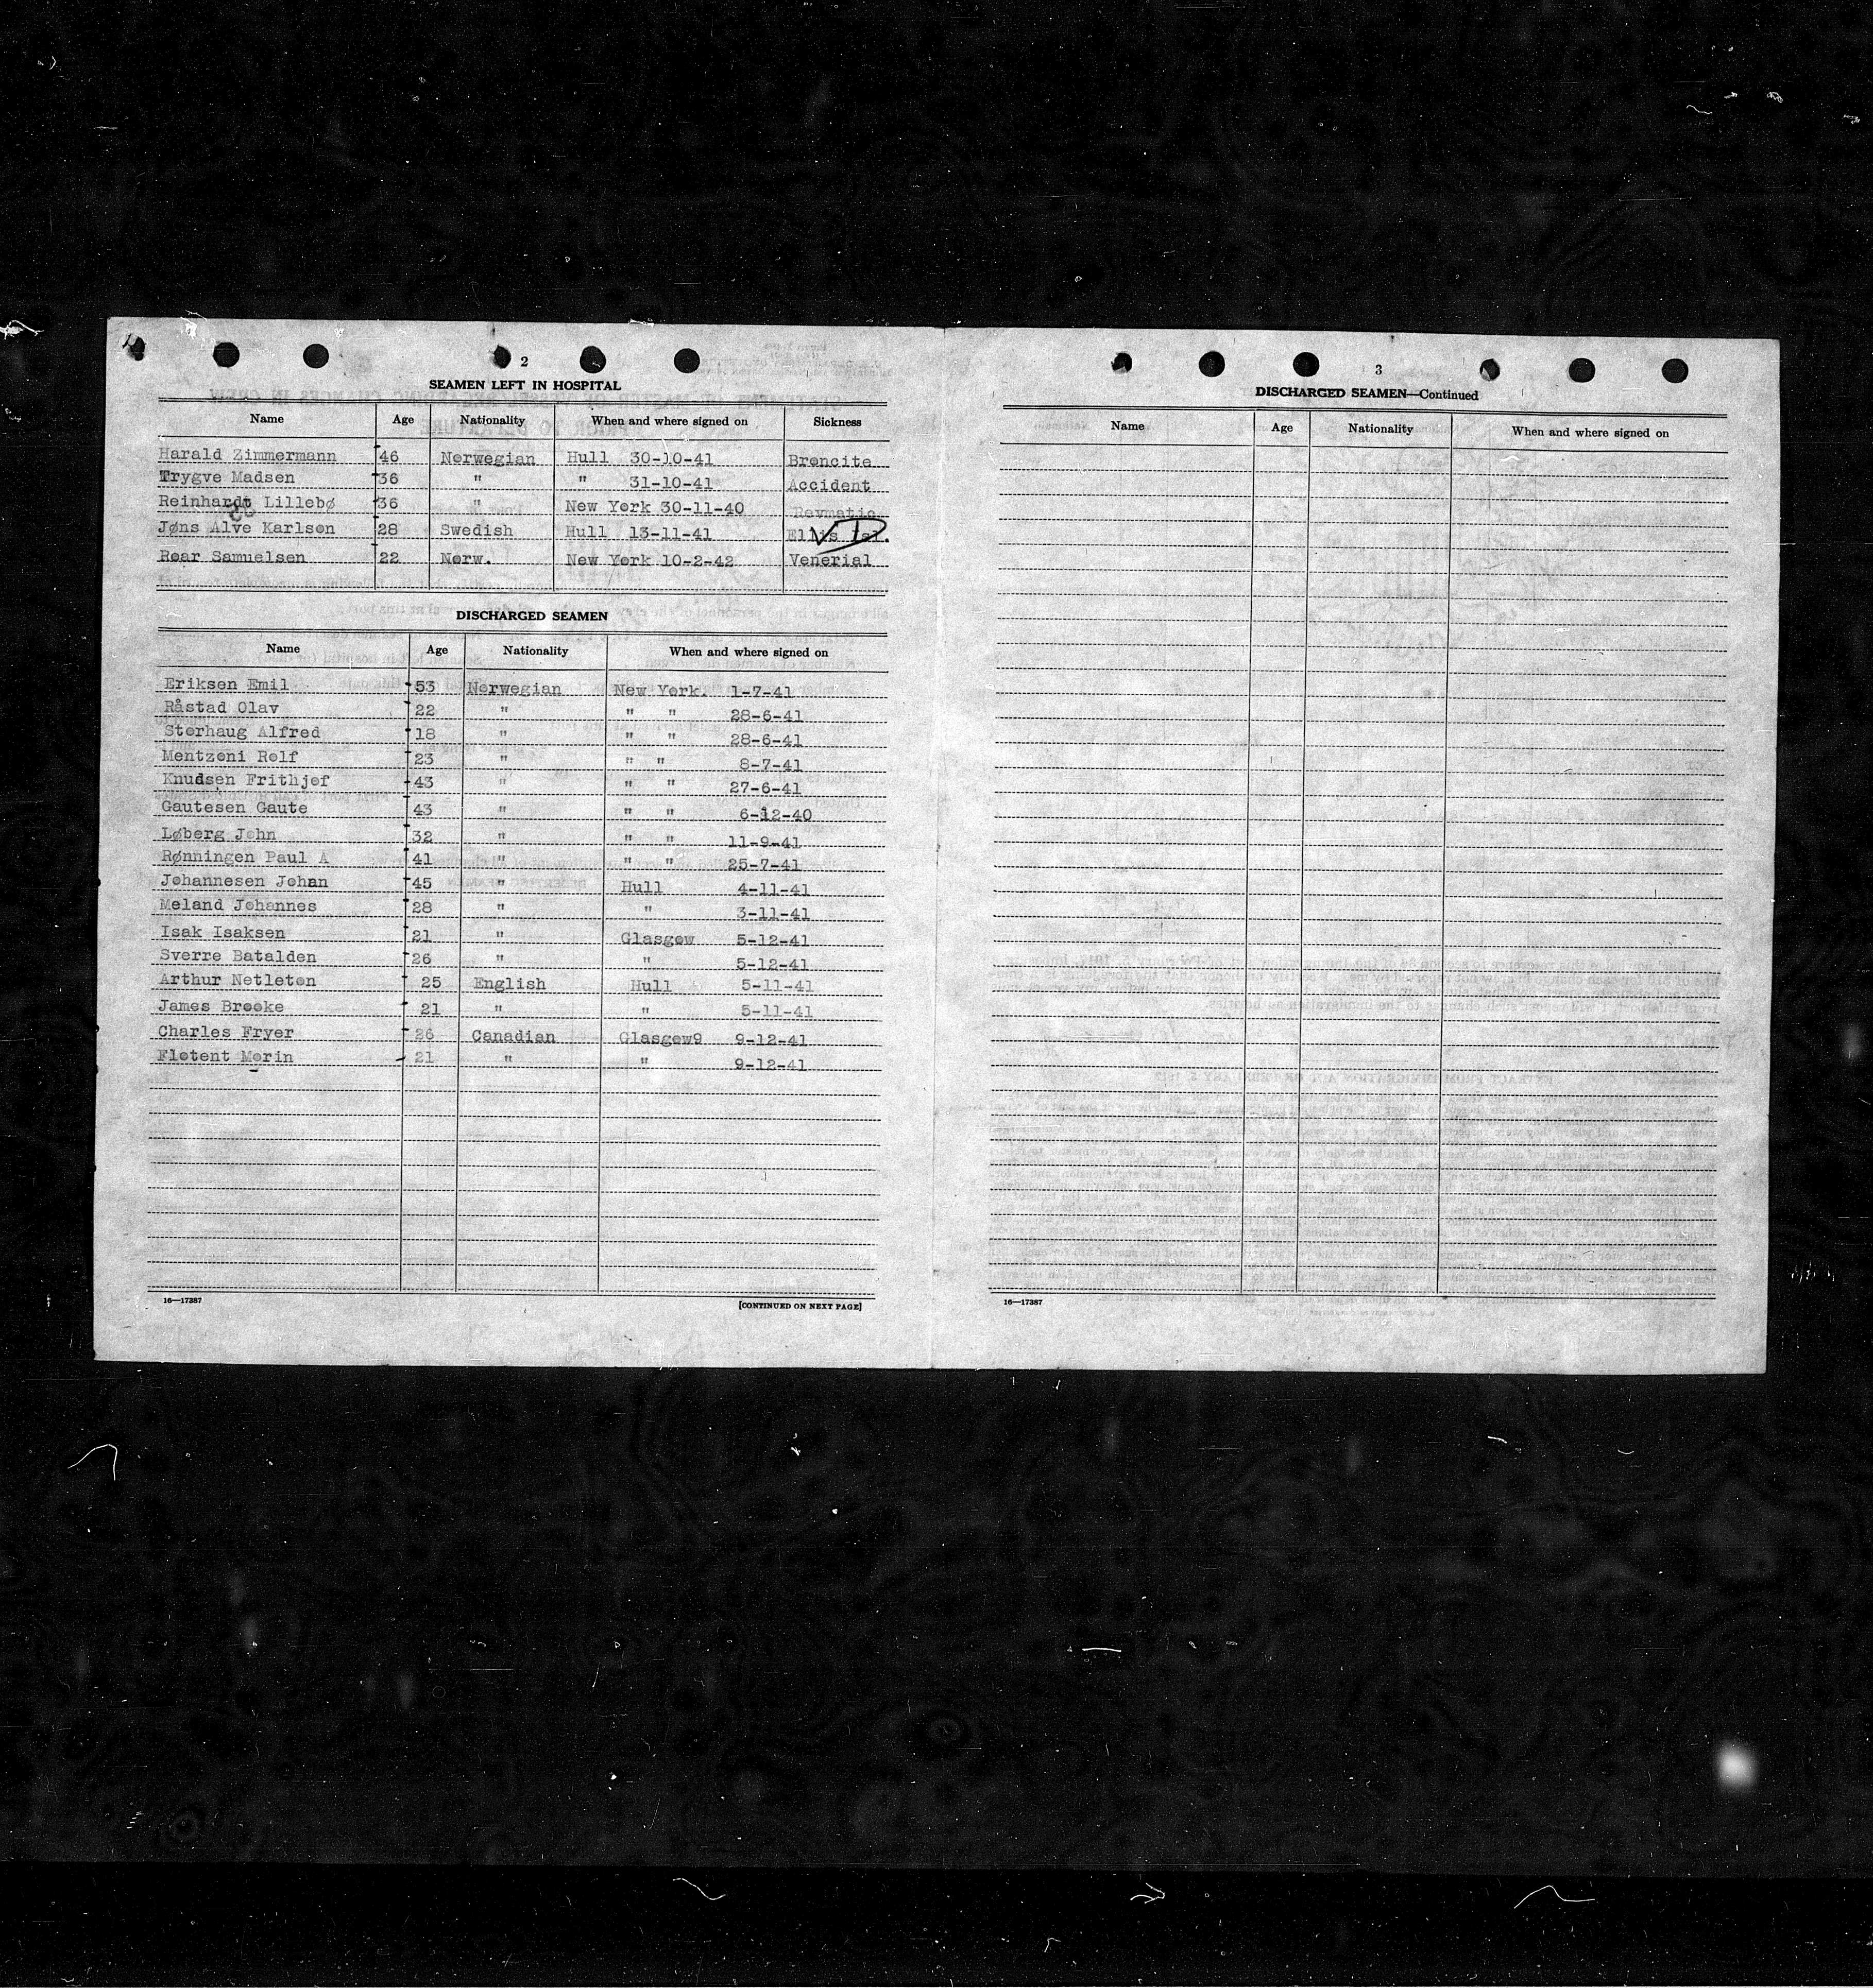 2
SEAMEN LEFT IN HOSPITAL
Name Age Nationality When and where signed on Sickness
Harald Zimmermann 46 Norwegian Hull 30-10-41 Broncite
Trygve Madsen 36 " " 31-10-41 Accident
Reinhardt Lillebø 36 " New York 30-11-40 Revmatic
Jøns Alve Karlson 28 Swedish Hull 13-11-41 Ellis Isl. VD
Roar Samuelsen 22 Norw. New York 10-2-42 Venerial
DISCHARGED SEAMEN
Name Age Nationality When and where signed on
Eriksen Emil 53 Norwegian New York 1-7-41
Råstad Olav 22 " " " 28-6-41
Storhaug Alfred 18 " " " 28-6-41
Mentzoni Rolf 23 " " " 8-7-41
Knudsen Frithjof 43 " " " 27-6-41
Gautesen Gaute 43 " " " 6-12-40
Løberg John 32 " " " 11-9-41
Rønningen Paul A 41 " " " 25-7-41
Johannesen Johan 45 " Hull 4-11-41
Meland Johannes 28 " " 3-11-41
Isak Isaksen 21 " Glasgow 5-12-41
Sverre Batalden 26 " " 5-12-41
Arthur Netleton 25 English Hull 5-11-41
James Brooke 21 " " 5-11-41
Charles Fryer 26 Canadian Glasgow9 9-12-41
Flotent Morin 21 " " 9-12-41
16—17387 [CONTINUED ON NEXT PAGE]
3
DISCHARGED SEAMEN—Continued
Name Age Nationality When and where signed on
16—17387